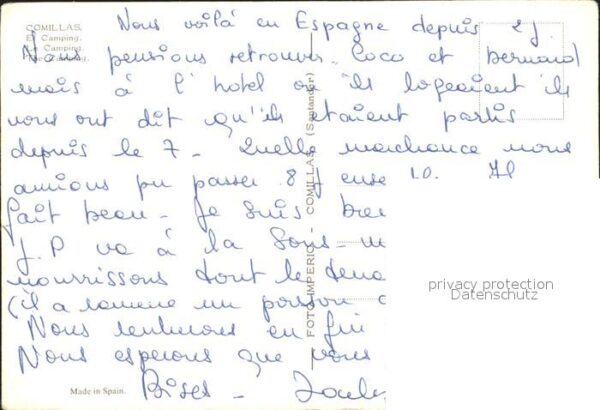 COMILLAS.
El Camping.
Le Camping.
The Camping.
Nous voilà en Espagne depuis 2 j.
Nous pensions retrouver Coco et Bernard
mais à l'hotel ou ils logeaient ils
nous ont dit qu'ils etaient partis
depuis le 7 - Quelle malchance nous
aurions pu passer 8 j ense Il
fait beau - Je suis bro
J.P va à la Sous-m
nourrissons tout le
(il a ramené un poisson
Nous rentrerons en fin
Nous esperons que vous
Bises -
FOTO IMPERIO - COMILLAS. (Santander)
Made in Spain.
privacy protection
Datenschutz